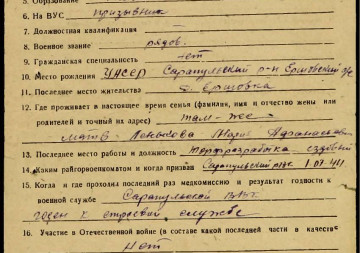 5. Образование
6. На ВУС призывник
7. Должностная квалификация
8. Военное звание рядов.
9. Гражданская специальность нет
10. Место рождения УАССР Сарапульский р-н Ершовский с/с
11. Последнее место жительства д. Ершовка
12. Где проживает в настоящее время семья (фамилия, имя и отчество жены или
родителей и точный их адрес) там-же
мать
13. Последнее место работы и должность Торфоразработка ездовый
14. Каким райгорвоенкоматом и когда призван Сарапульский РВК 1.01.44
15. Когда и где проходил последний раз медкомиссию и результат годности к
военной службе Сарапульский РВК
годен к строевой службе
16. Участие в Отечественной войне (в составе какой последней части в качестве
Нет